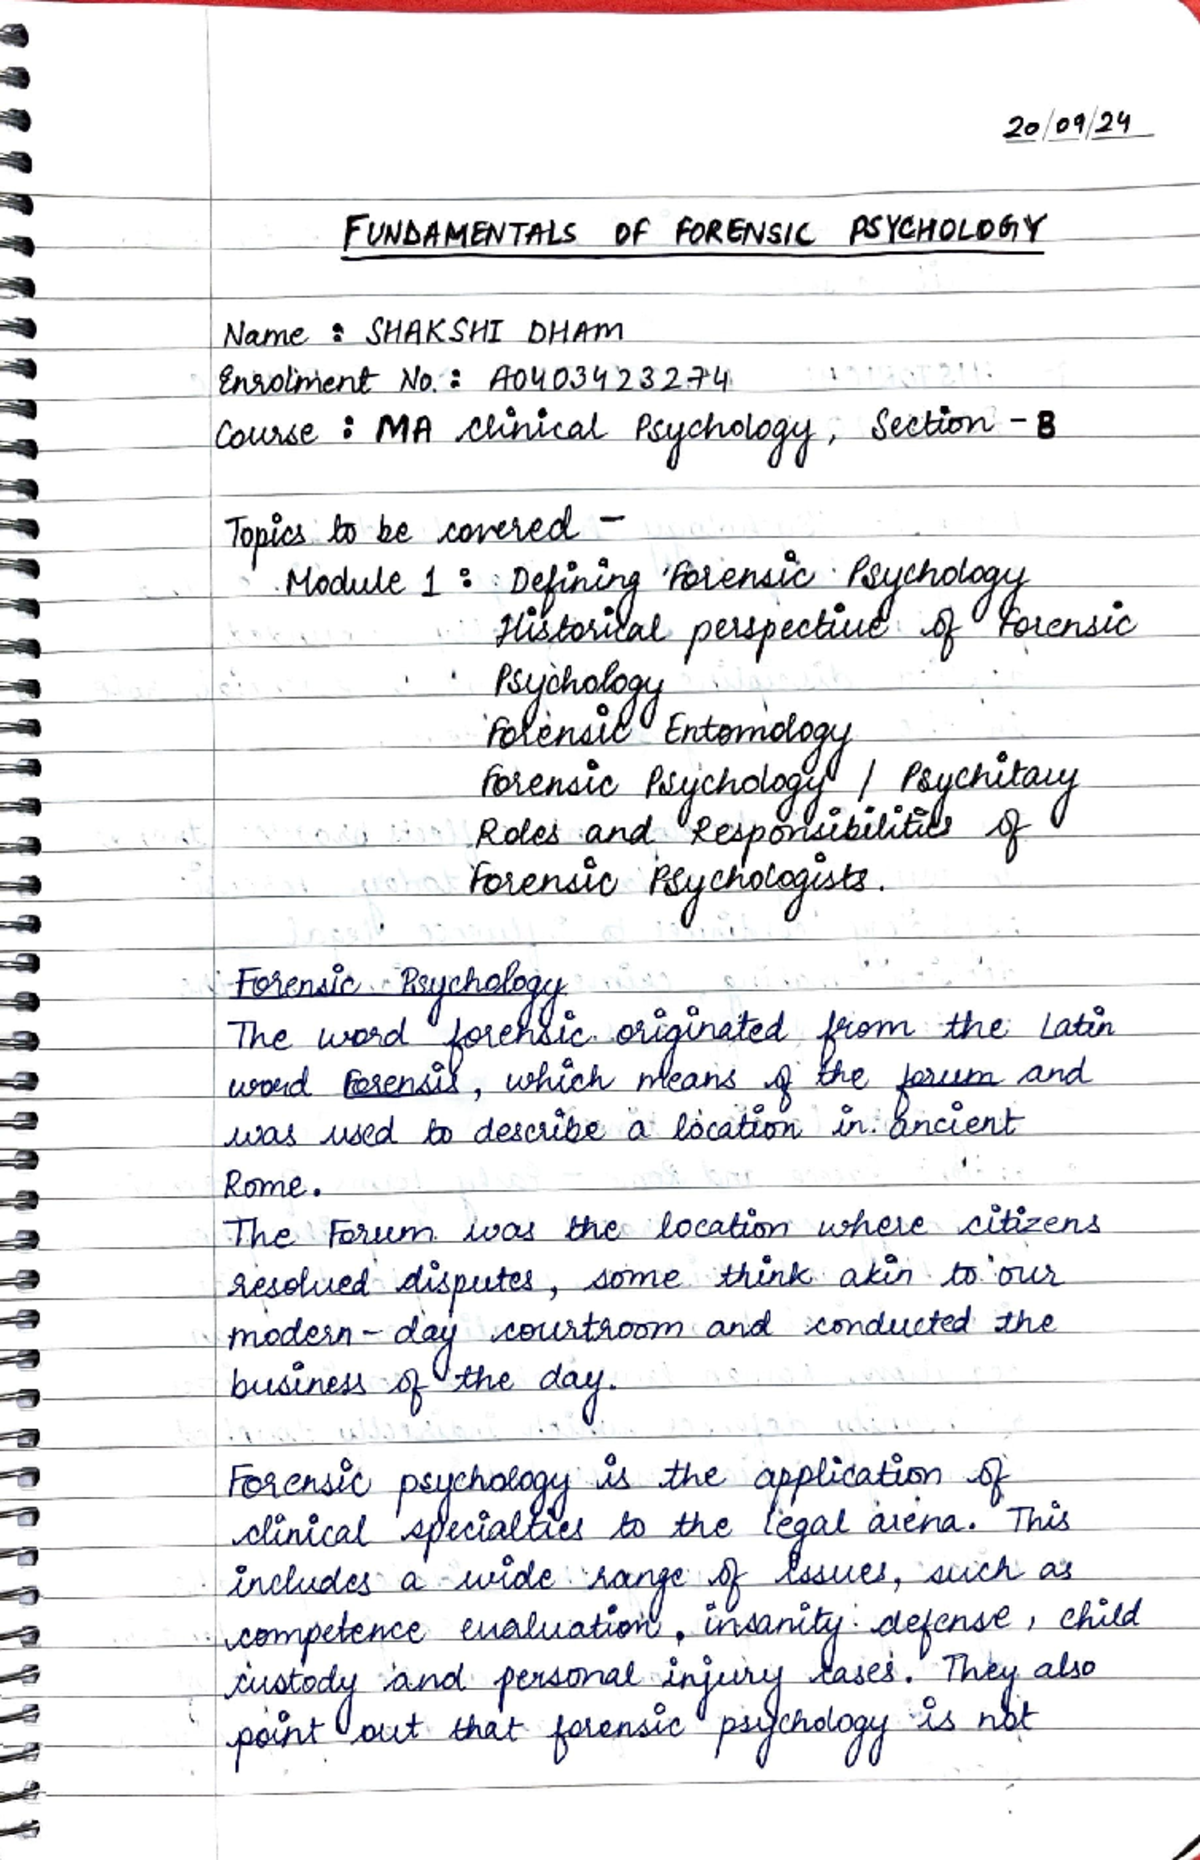 20/09/24
FUNDAMENTALS OF FORENSIC PSYCHOLOGY
Name : SHAKSHI DHAM
Enrolment No. : A0403423274
Course : MA Clinical Psychology, Section - B
Topics to be covered -
Module 1 : Defining Forensic Psychology
Historical perspective of Forensic
Psychology
Forensic Entomology
Forensic Psychology / Psychitary
Roles and Responsibilities of
Forensic Psychologists.
Forensic Psychology
The word forensic originated from the Latin
word Forensis, which means of the forum and
was used to describe a location in ancient
Rome.
The Forum was the location where citizens
resolved disputes, some think akin to our
modern-day courtroom and conducted the
business of the day.
Forensic psychology is the application of
clinical specialties to the legal arena. This
includes a wide range of issues, such as
competence evaluation, insanity defense, child
custody and personal injury cases. They also
point out that forensic psychology is not